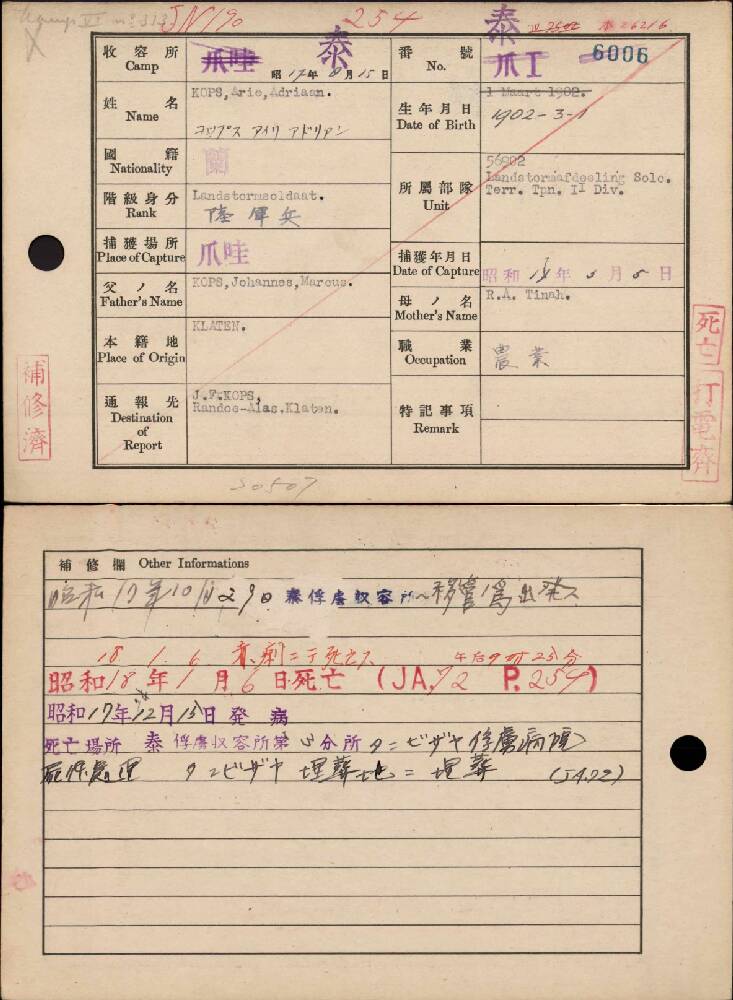 JN190
254
泰
泰
収容所
Camp
爪哇
昭 17年 8月 15日
番號
No.
爪I
6006
姓名
Name
KOPS, Arie, Adriaan.
コップス アイリ アドリアン
生年月日
Date of Birth
1 Maart 1902.
1902-3-1
國籍
Nationality
蘭
階級身分
Rank
Landstormsoldaat.
陸軍兵
所屬部隊
Unit
56902
Landstormafdeeling Solo.
Terr. Tpn. II Div.
捕獲場所
Place of Capture
爪哇
捕獲年月日
Date of Capture
昭和 17年 3月 8日
父ノ名
Father's Name
KOPS, Johannes, Marcus.
母ノ名
Mother's Name
R.A. Tinah.
本籍地
Place of Origin
KLATEN.
職業
Occupation
農業
通報先
Destination
of
Report
J.F. KOPS,
Randoe-Alas, Klaten.
特記事項
Remark
補修濟
死亡
打電済
30507
補修欄 Other Informations
昭和17年10月29日 泰俘虜収容所へ移管ノ為出発ス
18. 1. 6
午后9時25分
昭和18年1月6日死亡 (JA.72 P.254)
昭和17年12月15日発病
死亡場所 泰俘虜収容所第 分所タニビザヤ俘虜病院
タニビザヤ 埋葬地ニ埋葬 (JA.72)